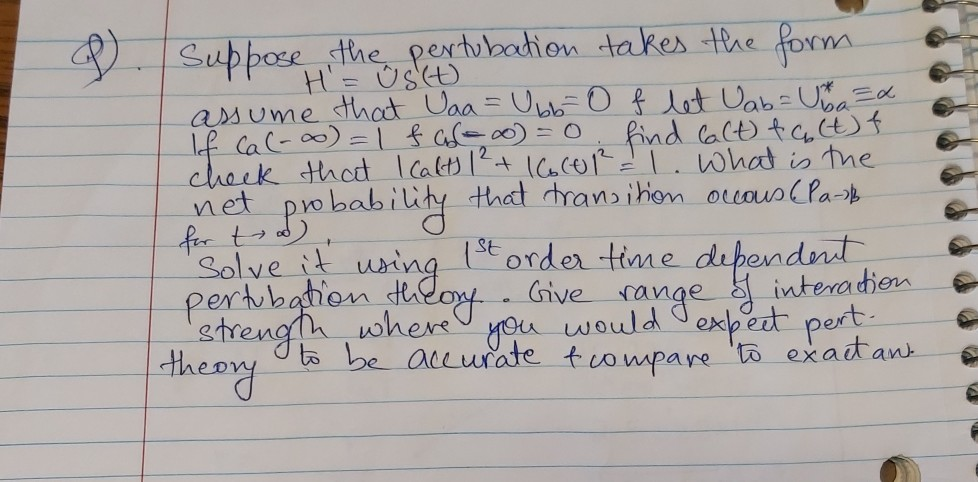 Q). Suppose the pertubation takes the form
H' = Ûδ(t)
assume that Uaa = Ubb = 0 & let Uab = U*ba ≡ α
If Ca(-∞) = 1 & Cb(-∞) = 0. find Ca(t) & Cb(t) &
check that |Ca(t)|² + |Cb(t)|² = 1. What is the
net probability that transition occours (Pa→b
for t→∞),
Solve it using 1st order time dependent
pertubation theory. Give range of interaction
strength where you would expect pert.
theory to be accurate & compare to exact ans.